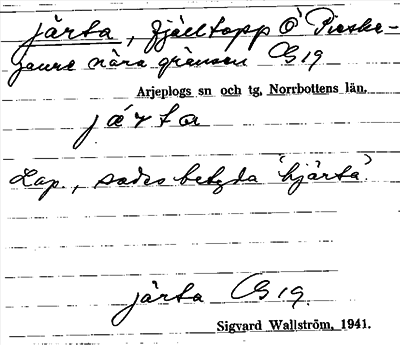 järta, fjälltopp Ö Pieske-
jaure nära gränsen CG 19
Arjeplogs sn och tg, Norrbottens län.
járta
Lap., sades betyda 'hjärta'.
järta CG 19
Sigvard Wallström, 1941.